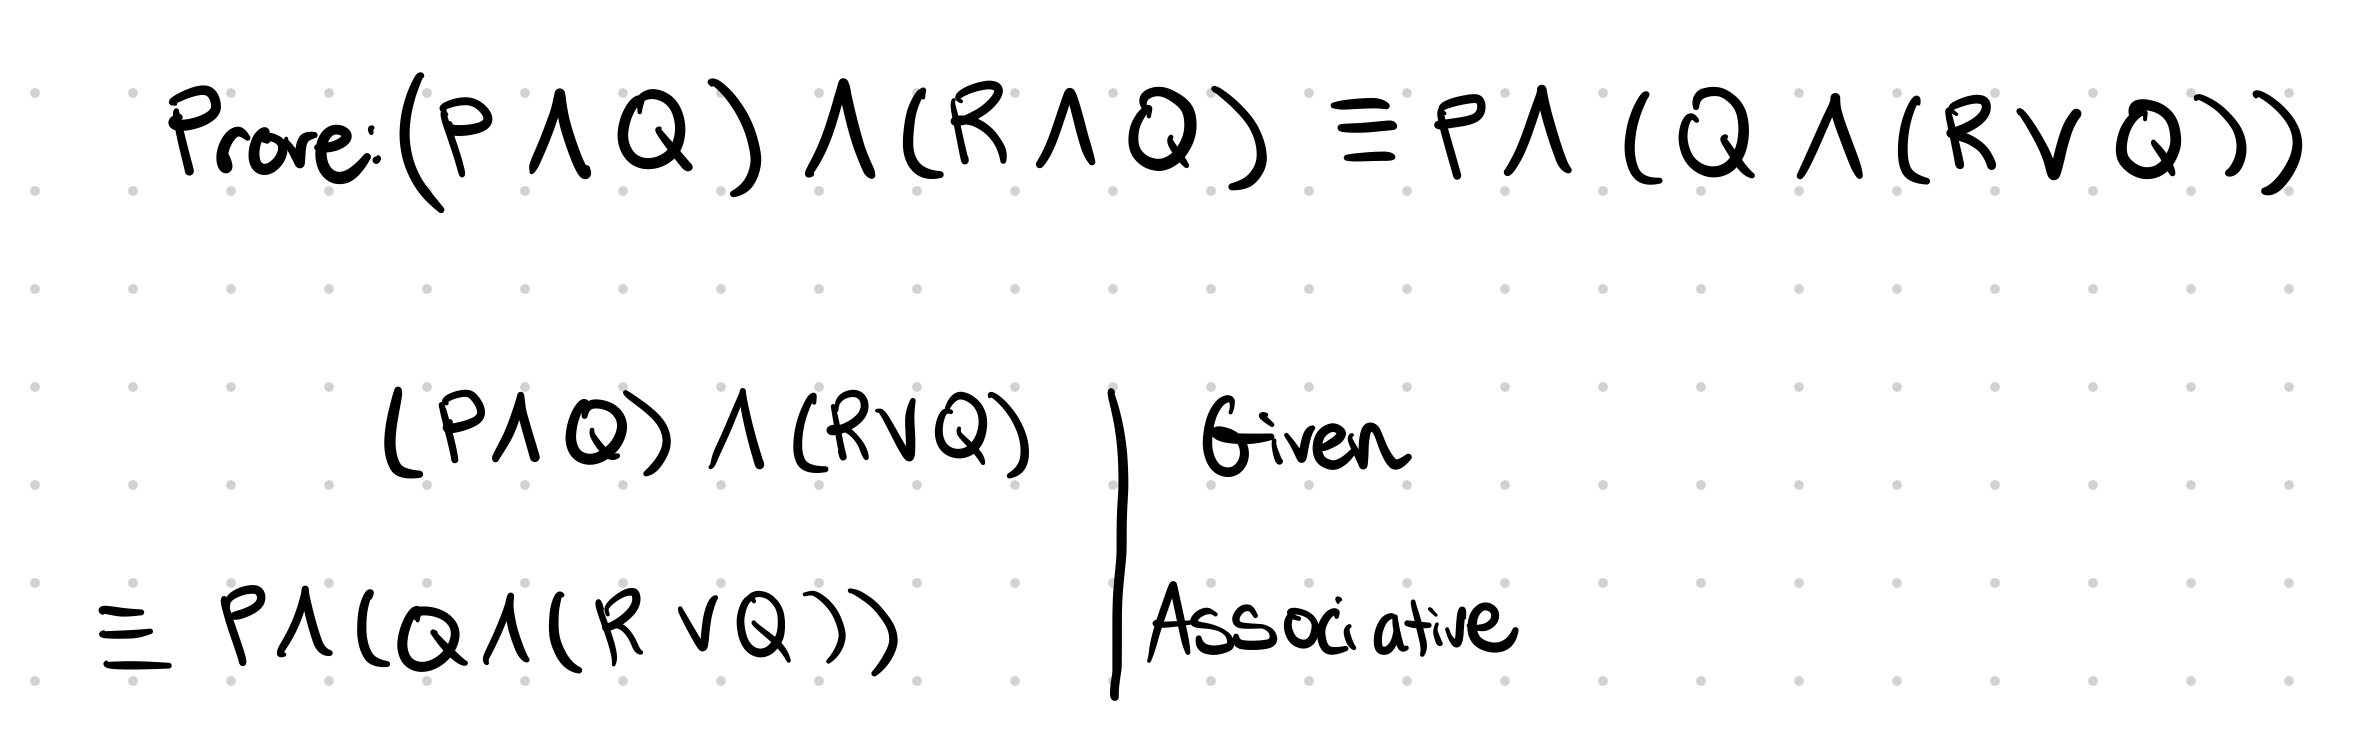 Prove: (P ∧ Q) ∧ (R ∧ Q) ≡ P ∧ (Q ∧ (R ∨ Q))
(P ∧ Q) ∧ (R ∨ Q) | Given
≡ P ∧ (Q ∧ (R ∨ Q)) | Associative